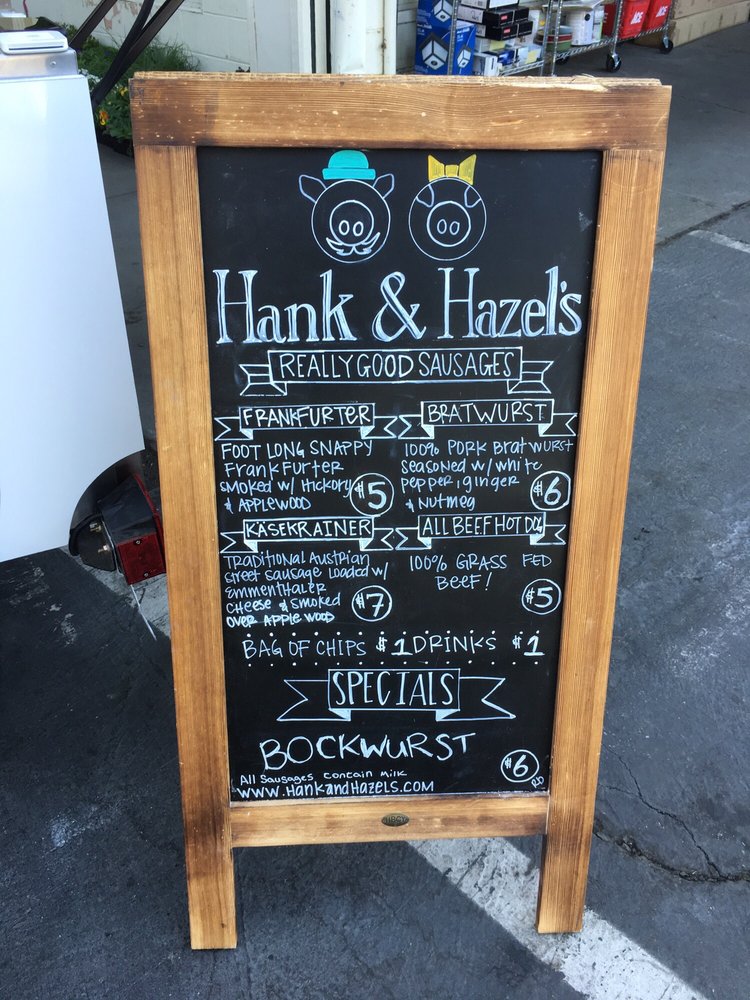 Hank & Hazel's
REALLY GOOD SAUSAGES
FRANKFURTER
FOOT LONG SNAPPY
FrankFurter
smoked w/ Hickory
& APPLEWOOD
$5
BRATWURST
100% PORK Bratwurst
seasoned w/ white
pepper, ginger
& nutmeg
$6
KÄSEKRAINER
Traditional Austrian
street sausage loaded w/
emmenthaler
cheese & smoked
over apple wood
$7
ALL BEEF HOT DOG
100% GRASS FED
BEEF!
$5
BAG OF CHIPS $1 DRINKS $1
SPECIALS
BOCKWURST
$6
All Sausages contain milk
www.HankandHazels.com